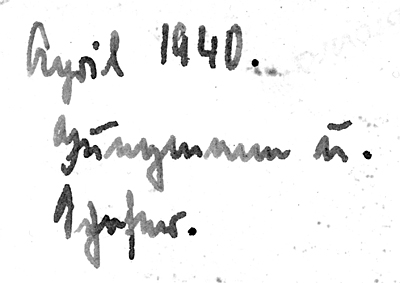 April 1940.
Jungmann u.
Schafer.